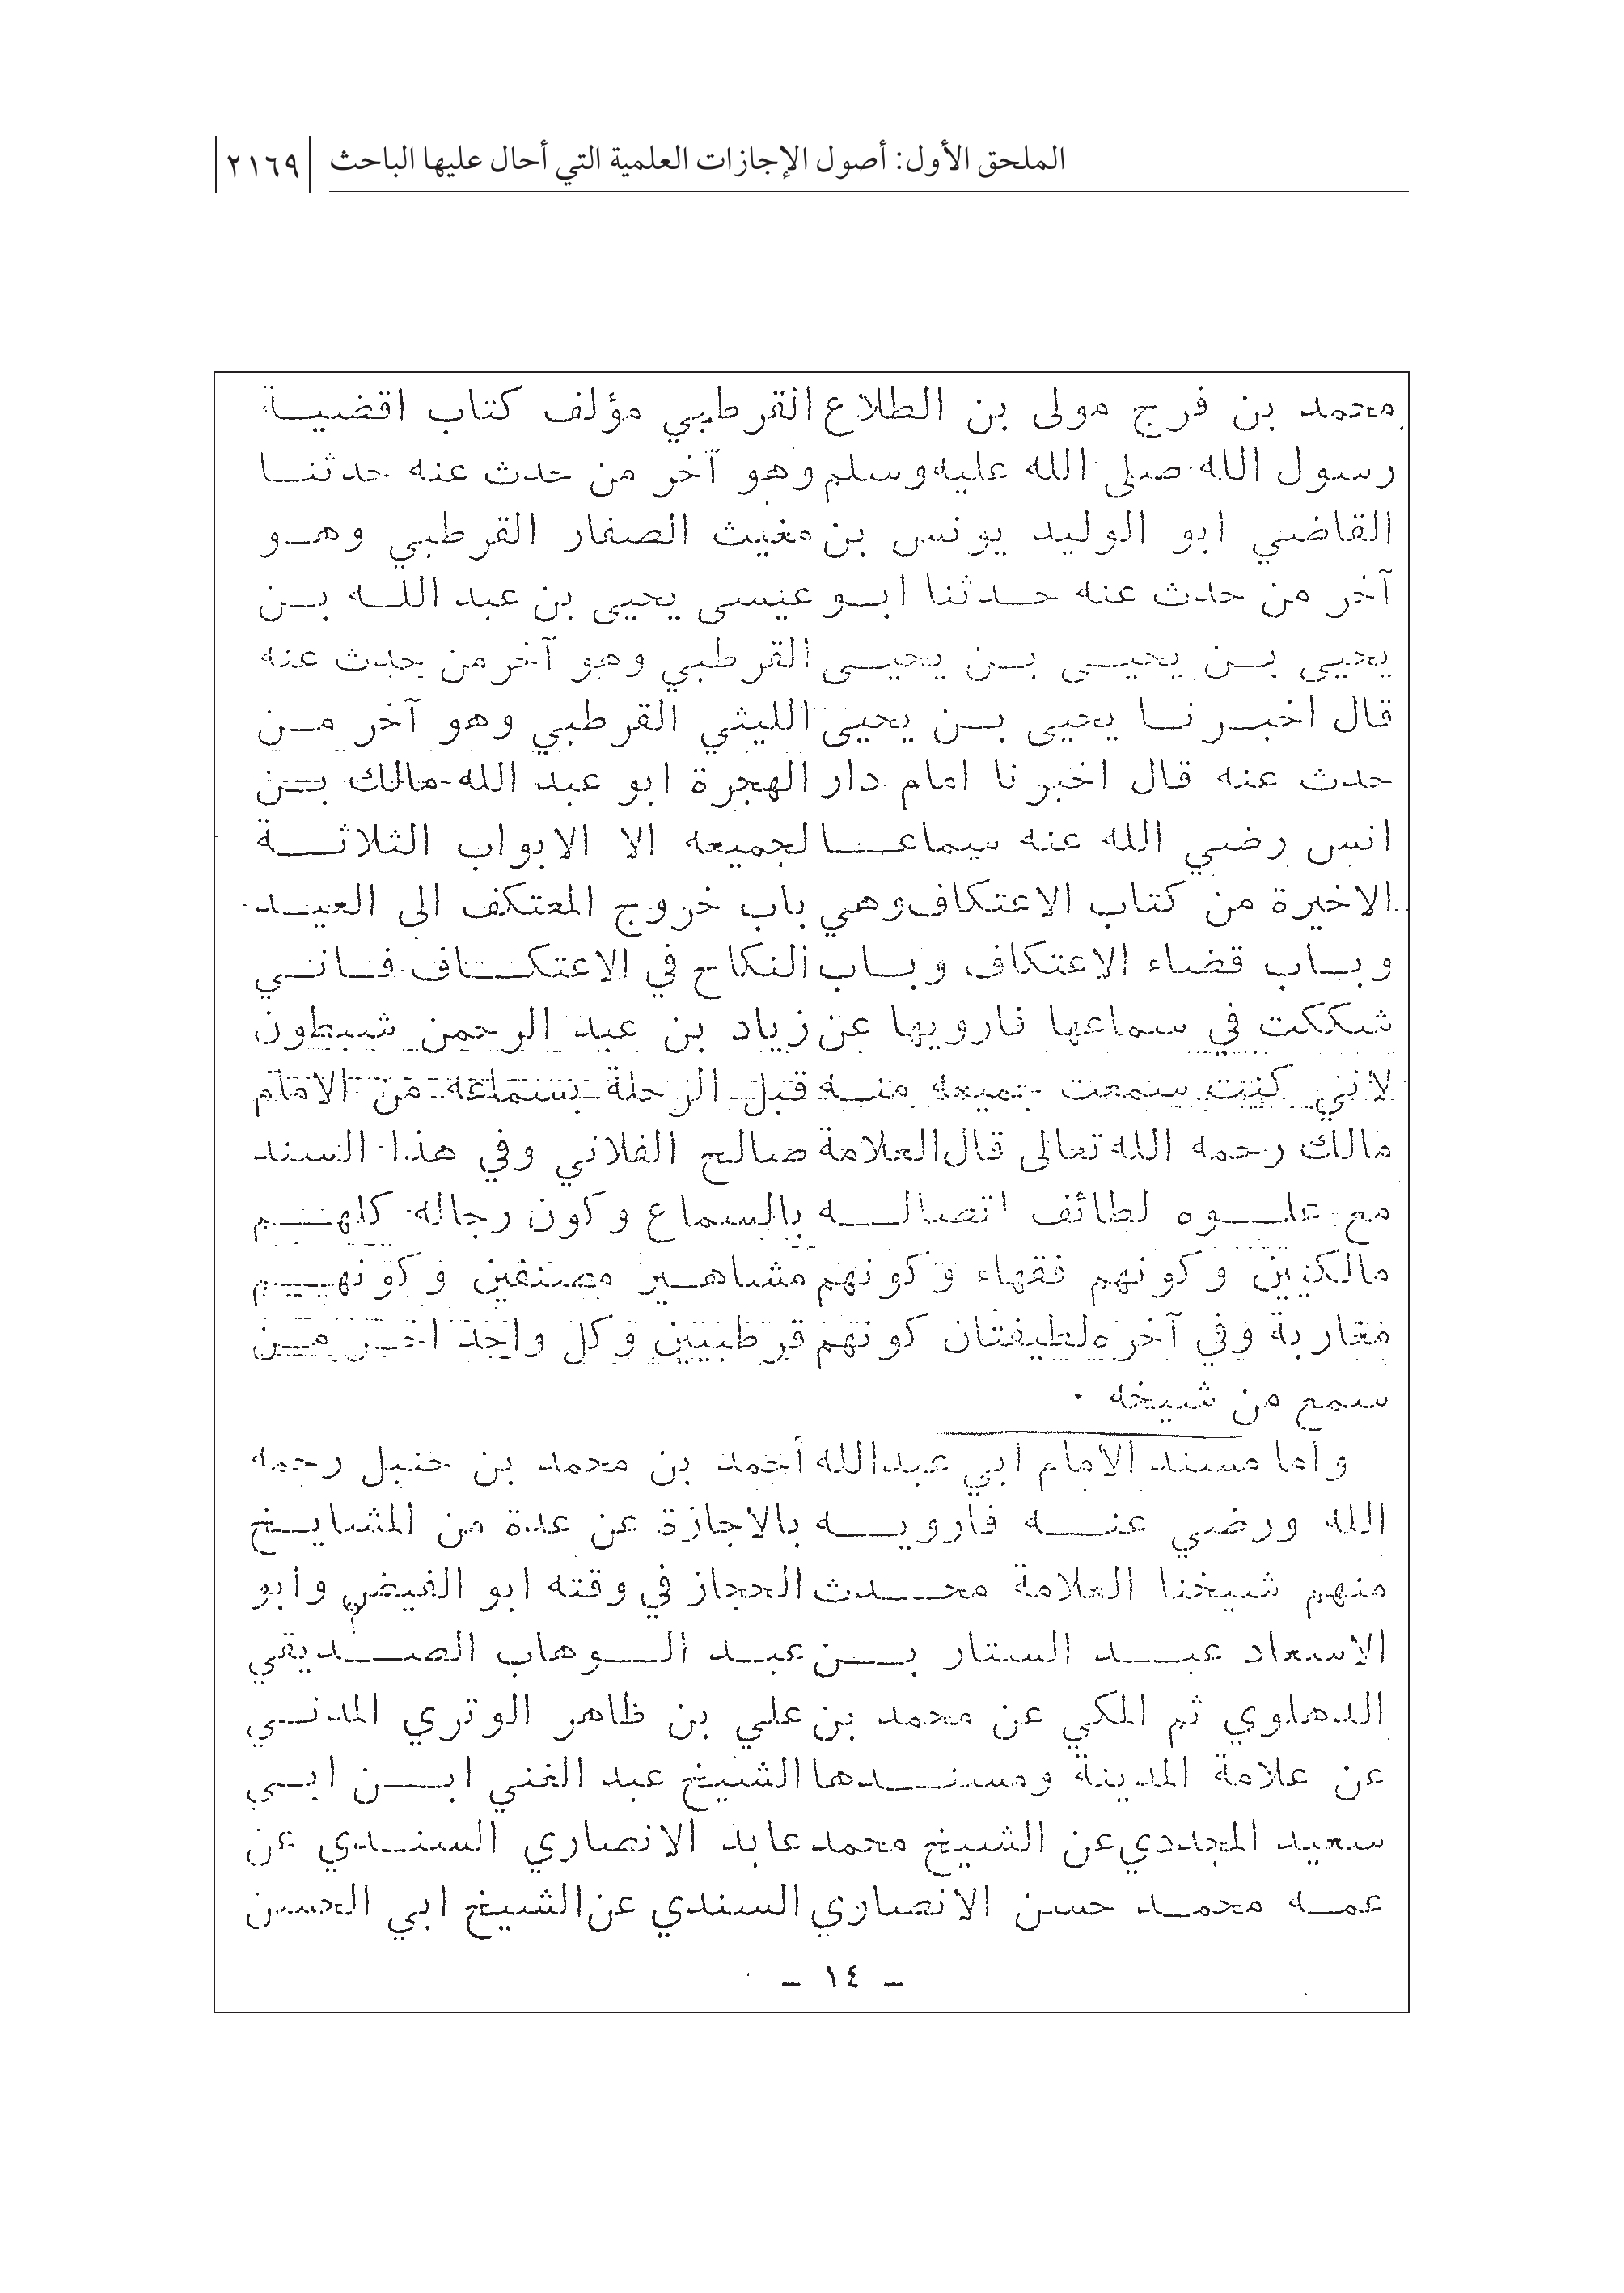 الملحق الأول: أصول الإجازات العلمية التي أحال عليها الباحث ٢١٦٩
محمد بن فرج مولى بن الطلاع القرطبي مؤلف كتاب اقضية
رسول الله صلى الله عليه وسلم وهو آخر من حدث عنه حدثنا
القاضي ابو الوليد يونس بن مغيث الصفار القرطبي وهو
آخر من حدث عنه حدثنا ابو عيسى يحيى بن عبد الله بن
يحيى بن يحيى بن يحيى القرطبي وهو آخر من حدث عنه
قال اخبرنا يحيى بن يحيى الليثي القرطبي وهو آخر من
حدث عنه قال اخبرنا امام دار الهجرة ابو عبد الله مالك بن
انس رضي الله عنه سماعا لجميعه الا الابواب الثلاثة
الاخيرة من كتاب الاعتكاف وهي باب خروج المعتكف الى العيد
وباب قضاء الاعتكاف وباب النكاح في الاعتكاف فاني
شككت في سماعها نارويها عن زياد بن عبد الرحمن شبطون
لانني كنت سمعت جميعه منه قبل الرحلة بسماعه من الامام
مالك رحمه الله تعالى قال العلامة صالح الفلاني وفي هذا السند
مع علوه لطائف اتصاله بالسماع وكون رجاله كلهم
مالكيين وكونهم فقهاء وكونهم مشاهير مصنفين وكونهم
مغاربة وفي آخره لطيفتان كونهم قرطبيين وكل واحد اخر من
سمع من شيخه .
وأما مسند الامام أبي عبدالله أحمد بن محمد بن حنبل رحمه
الله ورضي عنه فأرويه بالاجازة عن عدة من المشايخ
منهم شيخنا العلامة محدث الحجاز في وقته ابو الفيض وأبو
الاسعاد عبد الستار بن عبد الوهاب الصديقي
الدهلوي ثم المكي عن محمد بن علي بن ظاهر الوتري المدني
عن علامة المدينة ومسندها الشيخ عبد الغني ابن ابي
سعيد المجددي عن الشيخ محمد عابد الانصاري السندي عن
عمه محمد حسن الانصاري السندي عن الشيخ ابي الحسن
- ١٤ -